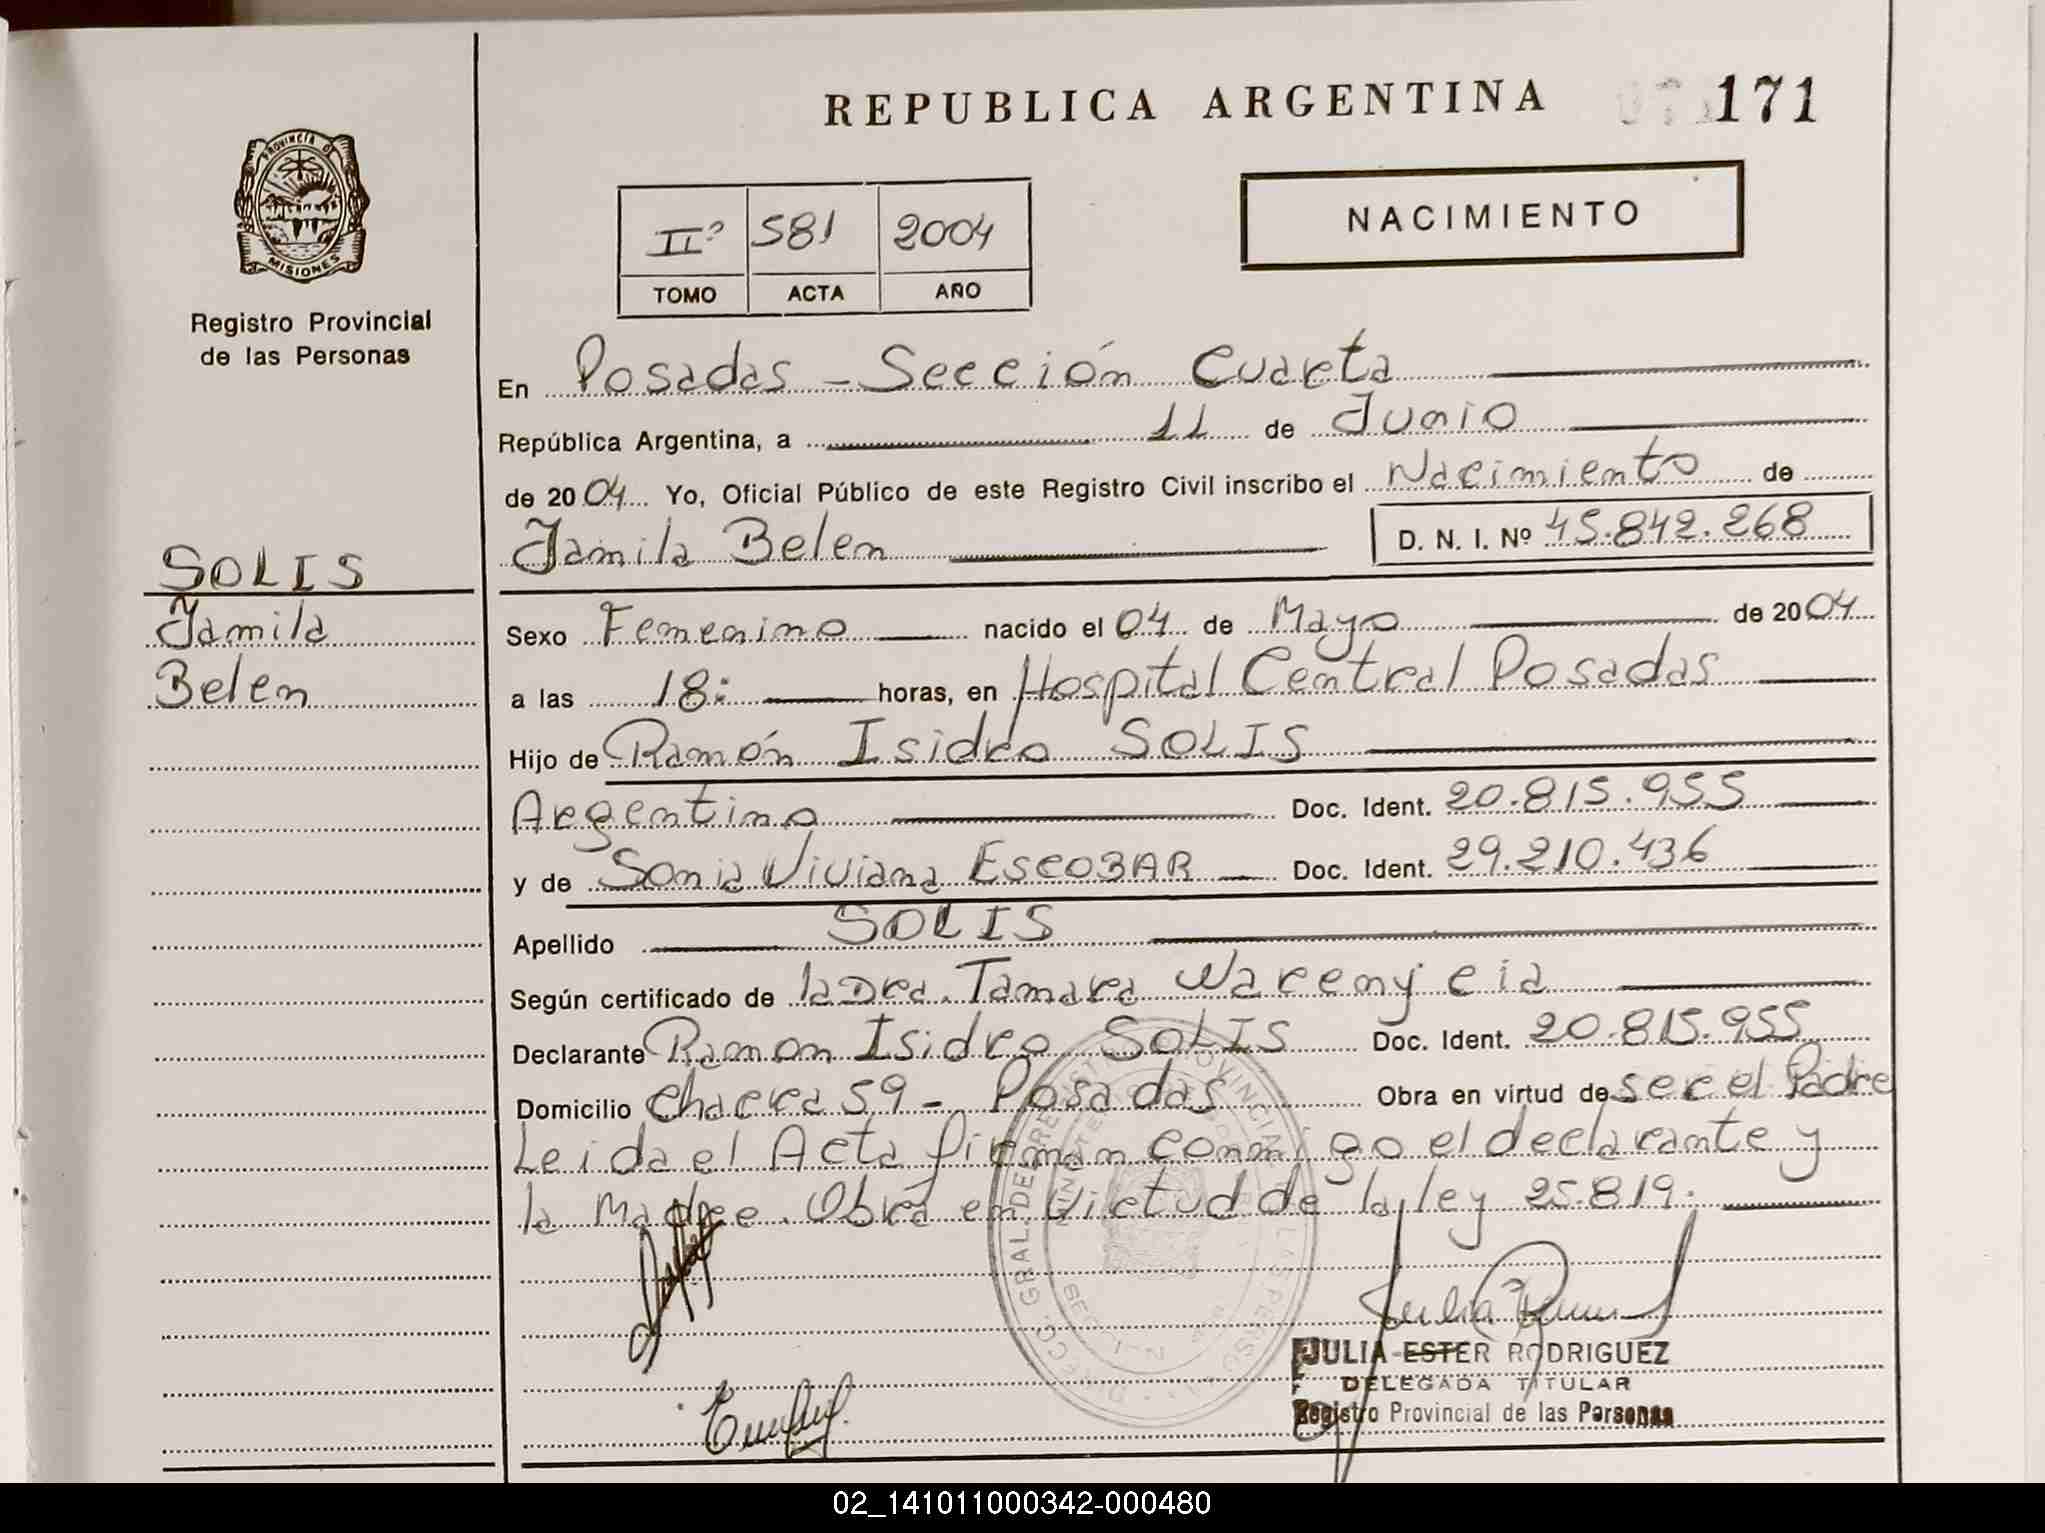 REPUBLICA ARGENTINA 171
PROVINCIA DE
MISIONES
Registro Provincial
de las Personas
NACIMIENTO
IIº 581 2004
TOMO ACTA AÑO
En Posadas - Sección Cuarta
República Argentina, a 11 de Junio
de 2004 Yo, Oficial Público de este Registro Civil inscribo el Nacimiento de
Jamila Belen D. N. I. Nº 45.842.268
SOLIS
Jamila
Belen
Sexo Femenino nacido el 04 de Mayo de 2004
a las 18: horas, en Hospital Central Posadas
Hijo de Ramón Isidro SOLIS
Argentino Doc. Ident. 20.815.955
y de Sonia Viviana ESCOBAR Doc. Ident. 29.210.436
Apellido SOLIS
Según certificado de la Dra. Tamara
Declarante Ramon Isidro SOLIS Doc. Ident. 20.815.955
Domicilio Chacra 59 - Posadas Obra en virtud de ser el Padre
Leida el Acta firman conmigo el declarante y
la Madre. Obra en virtud de la ley 25.819.
JULIA ESTER RODRIGUEZ
DELEGADA TITULAR
Registro Provincial de las Personas
02_141011000342-000480